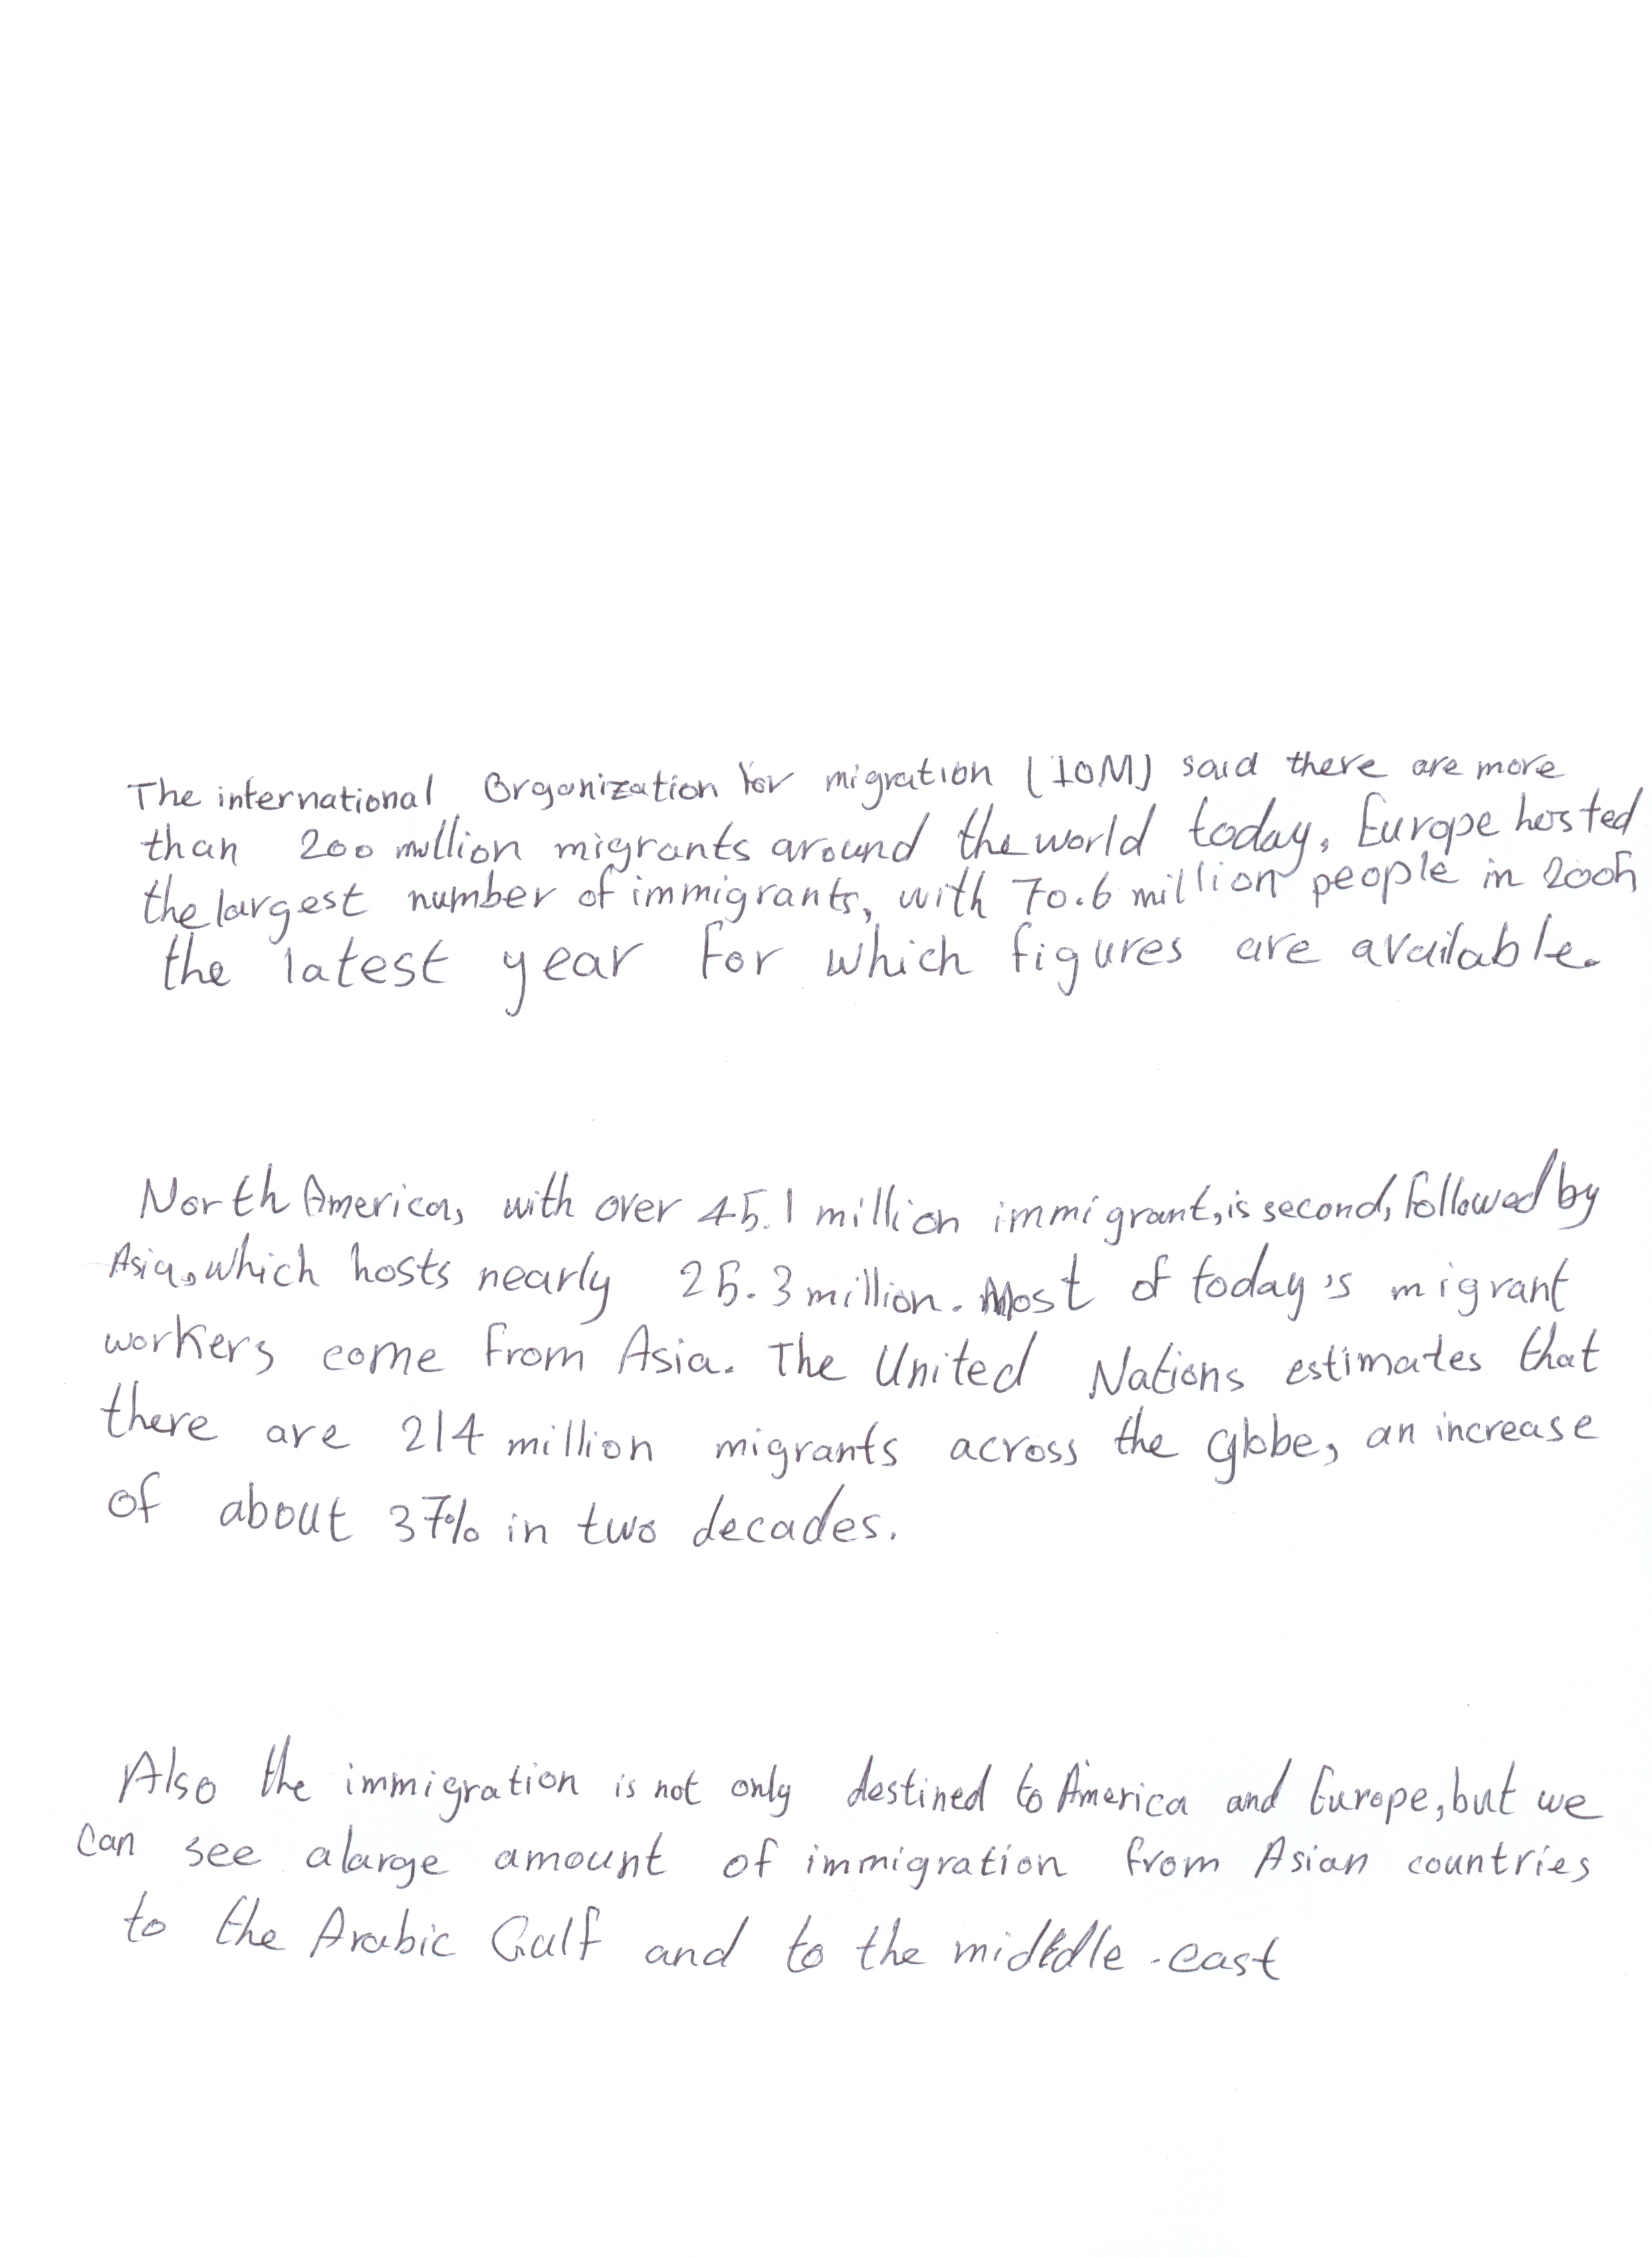 The international Organization for migration (IOM) said there are more
than 200 million migrants around the world today. Europe hosted
the largest number of immigrants, with 70.6 million people in 2005
the latest year for which figures are available.
North America, with over 45.1 million immigrant, is second, followed by
Asia, which hosts nearly 25.3 million. Most of today's migrant
workers come from Asia. The United Nations estimates that
there are 214 million migrants across the globe, an increase
of about 37% in two decades.
Also the immigration is not only destined to America and Europe, but we
can see a large amount of immigration from Asian countries
to the Arabic Gulf and to the middle-east